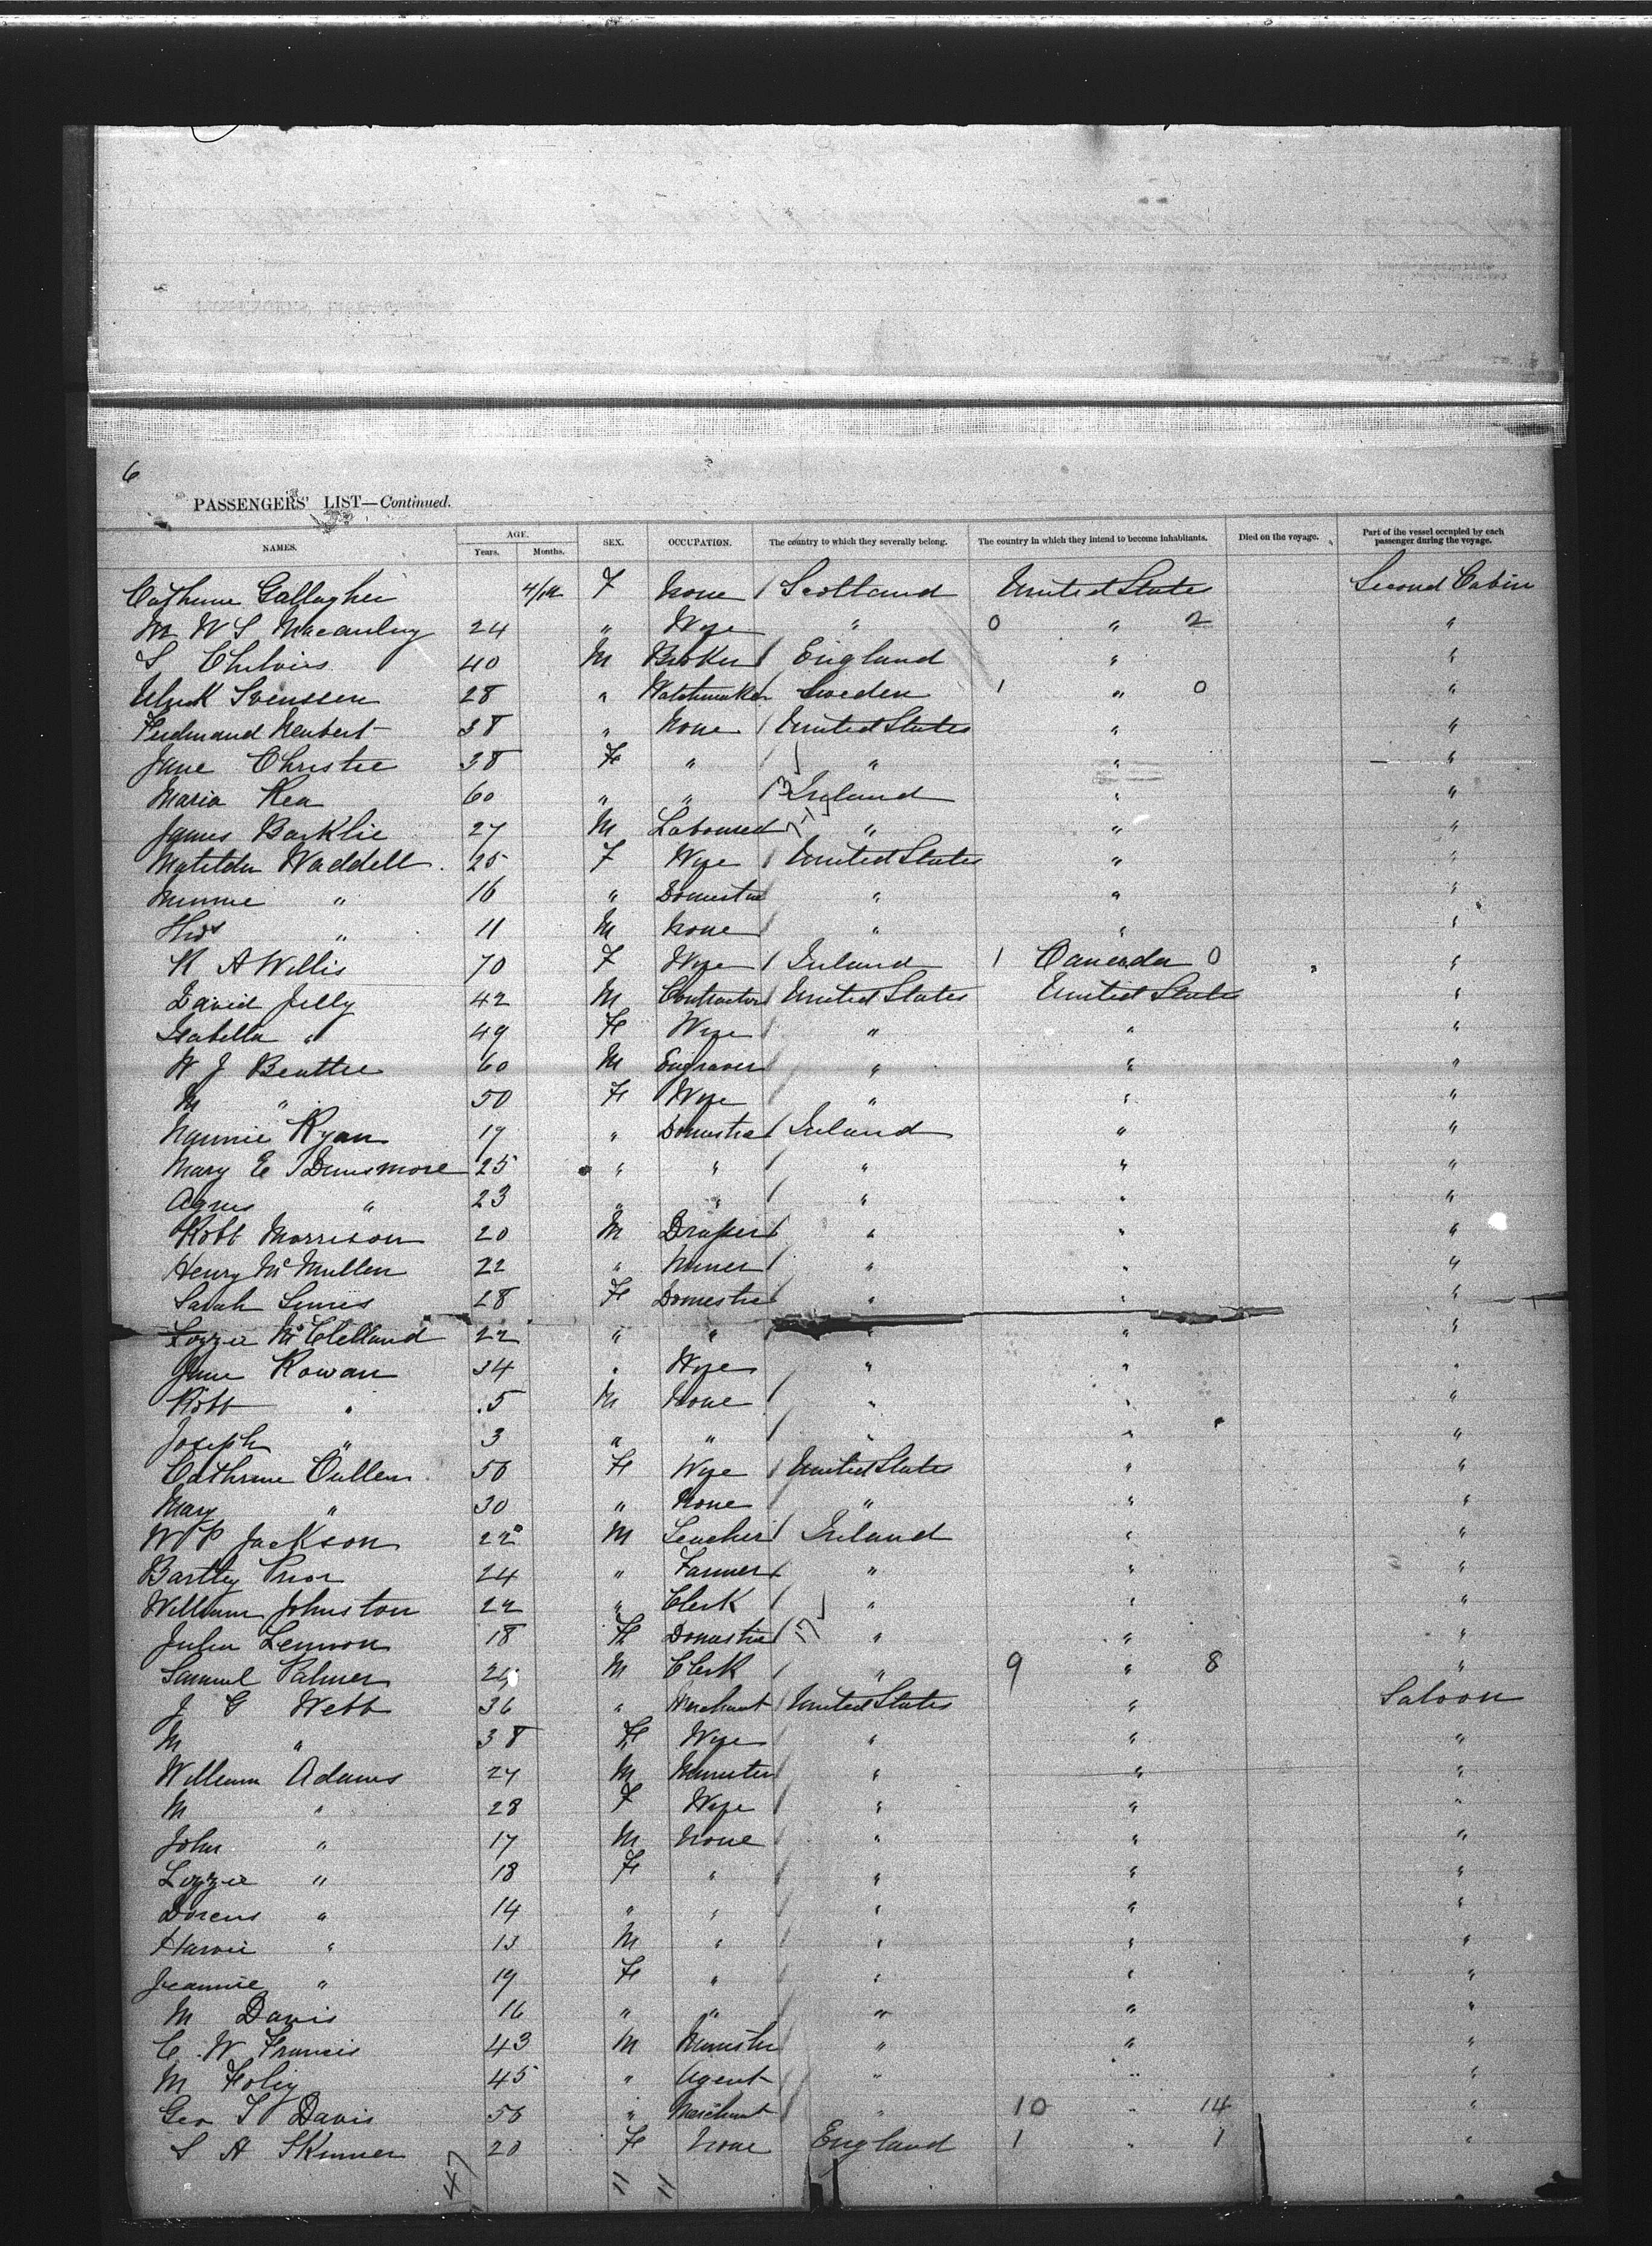 6
PASSENGERS' LIST—Continued.
NAMES. AGE. Years. Months. SEX. OCCUPATION. The country to which they severally belong. The country in which they intend to become inhabitants. Died on the voyage. Part of the vessel occupied by each passenger during the voyage.
Gallagher F None / Scotland United States Second Cabin
W S Macaulay 24 " Wife " 0 " 2 "
S 40 M Broker / England " "
Svenssen 28 " Watchmaker Sweden 1 " 0 "
Ferdinand Neubert 38 " None / United States " "
Jane Christie 38 F " / " " "
Maria Rea 60 " " / Ireland " "
James Barklie 27 M Labourer " " "
Matilda Waddell 25 F Wife / United States " "
Minnie " 16 " Domestic / " " "
Thos " 11 M None / " " "
A Willis 70 F Wife / Ireland 1 Canada 0 "
David Jelly 42 M Contractor United States United States "
Isabella " 49 F Wife / " " "
W J Beattie 60 M Engraver / " " "
M " 50 F Wife / " " "
Nannie Ryan 19 " Domestic / Ireland " "
Mary E Dunsmore 25 " " / " " "
Agnes " 23 " " / " " "
Robt Morrison 20 M Draper / " " "
Henry McMullen 22 " / " " "
Sarah 28 F Domestic " " "
Lizzie McClelland 22 " " / " " "
Jane Rowan 34 " Wife " " "
Robt " 5 M None / " " "
Joseph " 3 " " / " " "
Cathrine Cullen 50 F Wife / United States " "
Mary " 30 " None / " " "
W P Jackson 22 M Teacher / Ireland " "
Bartley Prior 24 " Farmer / " " "
William Johnston 22 " Clerk / " " "
Julia Lennon 18 F Domestic / " " "
Samuel Palmer M Clerk / " 9 " 8 "
J G Webb 36 " Merchant / United States " Saloon
M " 38 F Wife / " " "
William Adams M Minister / " " "
M " 28 F Wife / " " "
John " 17 M None / " " "
Lizzie " 18 F " / " " "
Dorcus " 14 " " / " " "
Harvie " 13 M " / " " "
Jeannie " 19 F " / " " "
M Davis 16 " " / " " "
C. W Francis 43 M Minister / " " "
M Foley 45 " Agent / " " "
Geo T Davis " Merchant / " 10 " 14 "
S A Skinner 20 F None England 1 " 1 "
47 11 11